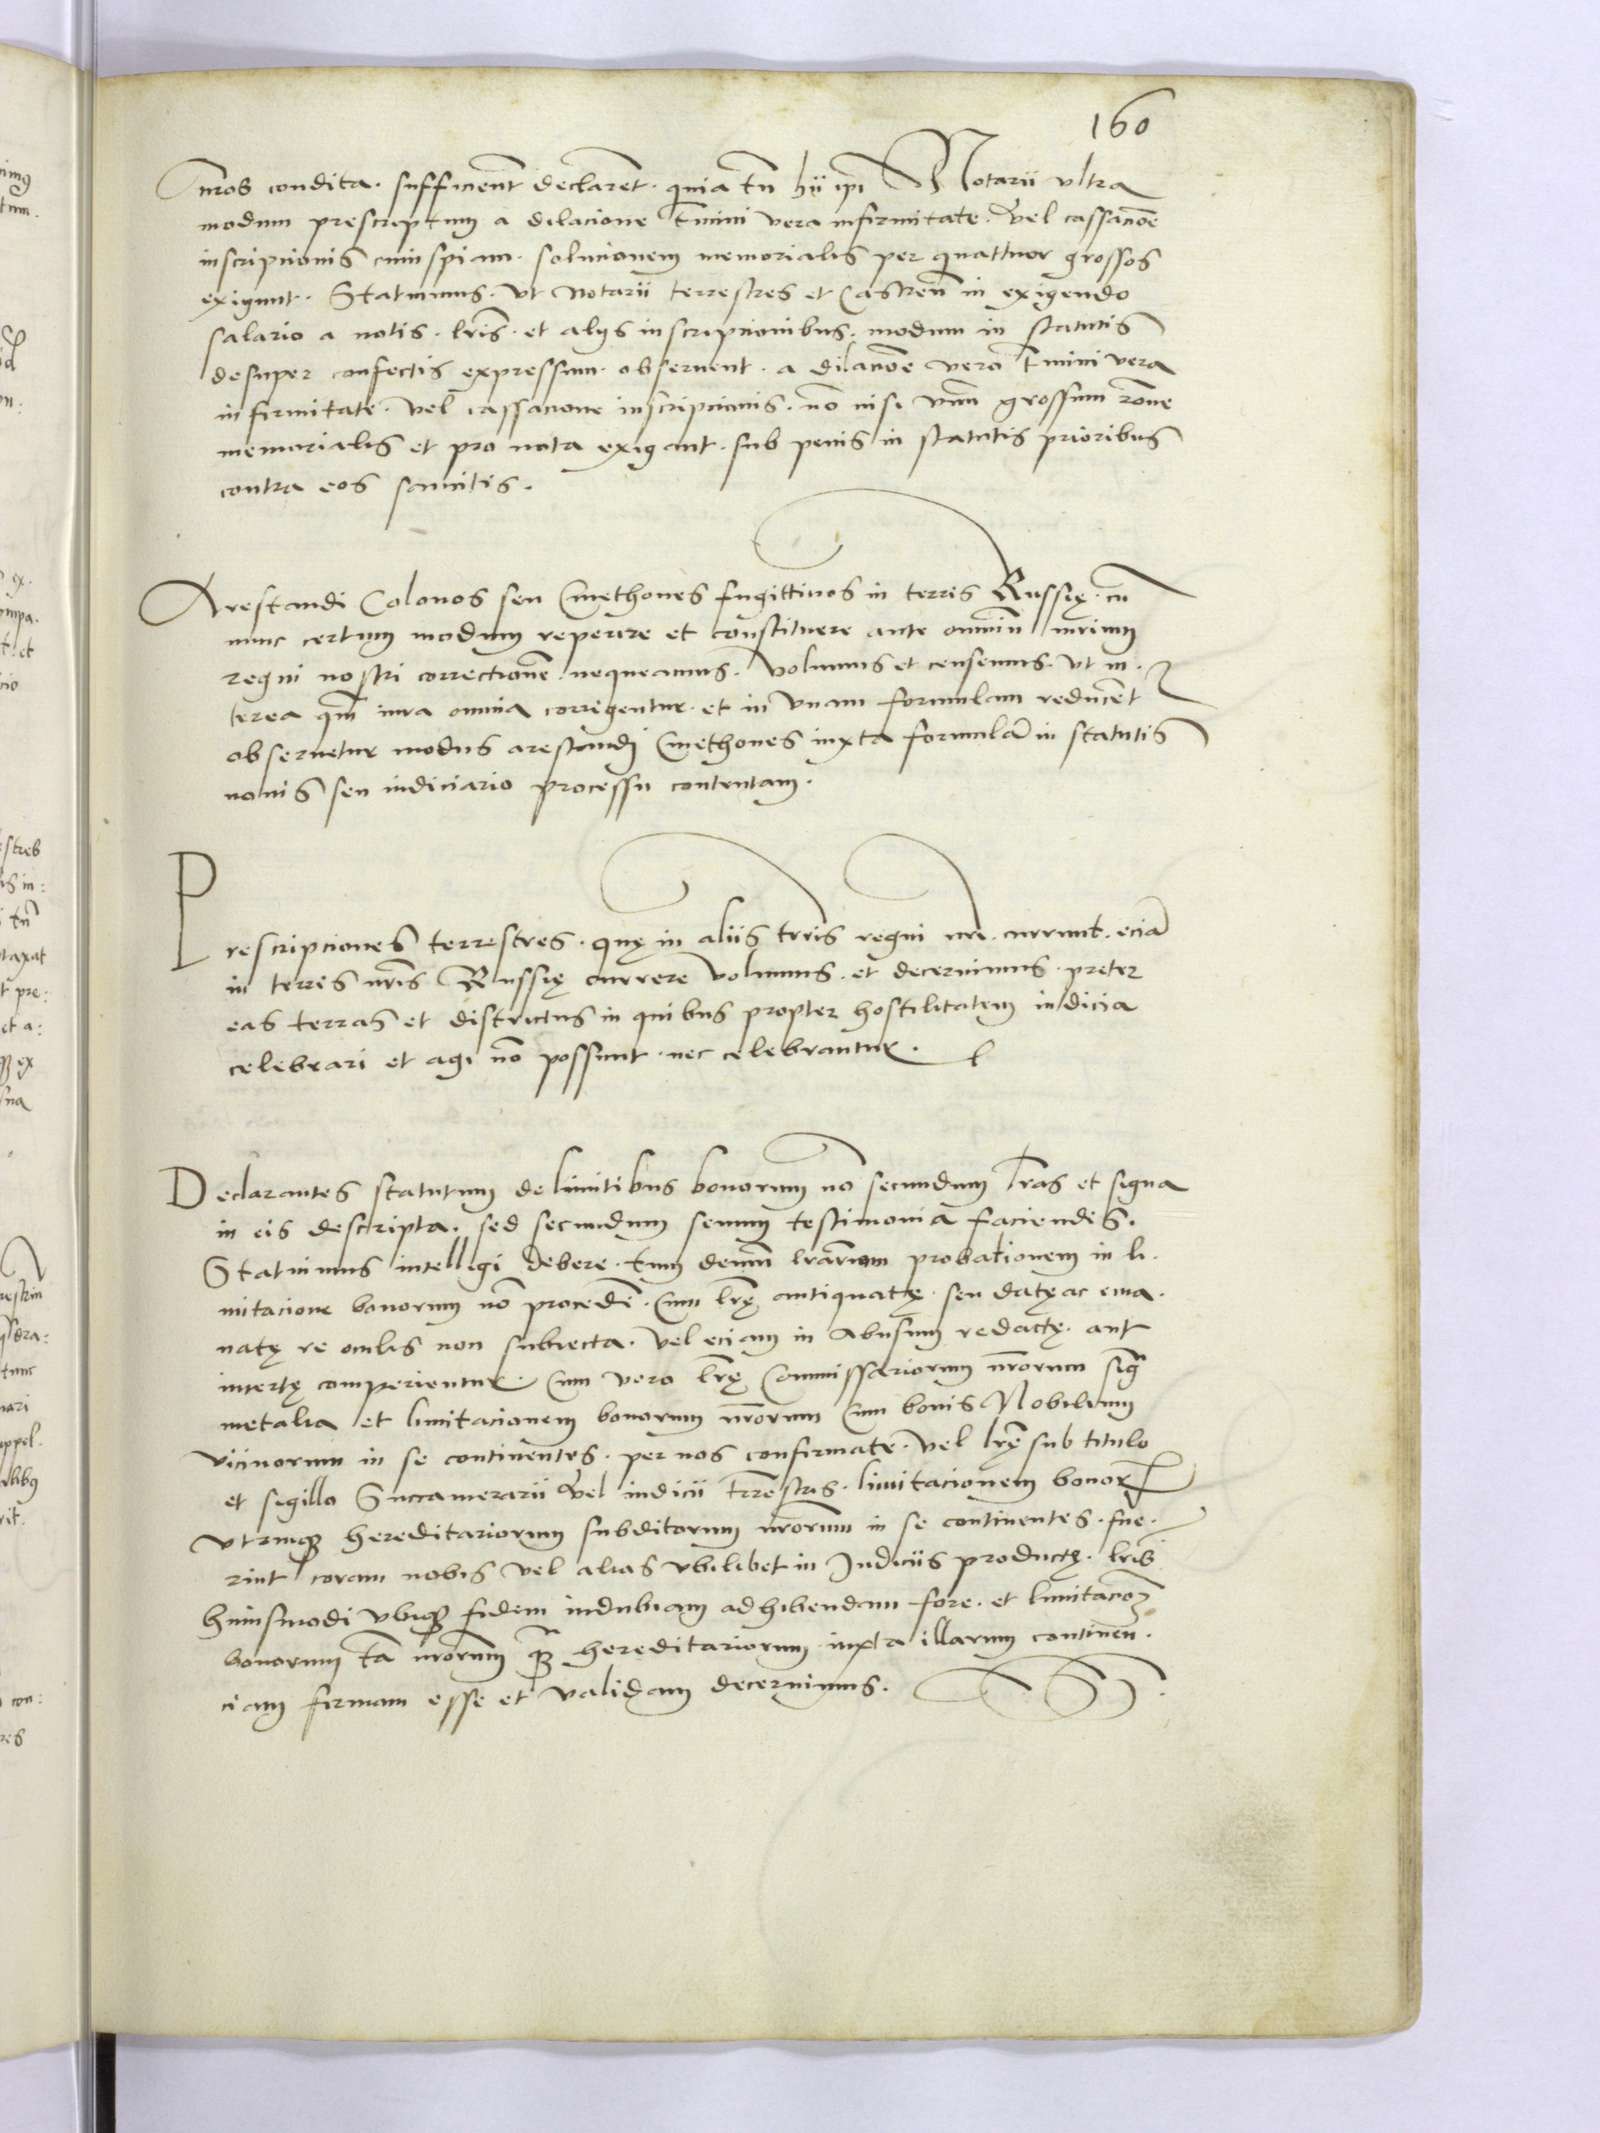 160
nr̃os condita. sufficient declaret. quia tñ hii ip̃i Notarii vltra
modum prescriptum a dilacione t̃mini vera infirmitate. vel cassac̃oe
inscripcionis cuiuspiam. solucionem memorialis per quattuor grossos
exigunt. Statuimus. vt Notarii terrestres et Castren̄ in exigendo
salario a notis. lr̃is. et alijs inscripcionibus. modum in statutis
desuper confectis expressum. obseruent. a dilac̃oe vero t̃mini vera
infirmitate. vel cassacione inscripcionis. nõ nisi vnũ grossum rõne
memorialis et pro nota exigant. sub penis in statutis prioribus
contra eos sancitis.
Arestandi Colonos seu Cmethones fugittiuos in terris Russię. cũ
nunc certum modum reperire et constituere ante omniũ iurium
regni nostri correctionẽ nequeamus. volumus et censemus. vt in.
terea qm̃ iura omnia corrigentur. et in vnam formulam reducent̃
obseruetur modus arestandj Cmethones iuxta formulã in statutis
nouis seu iudiciario processu contentam.
Prescripciones terrestres. quę in aliis tr̃ris regni nr̃i. currunt. eciã
in terris nr̃is Russię currere volumus. et decernimus. preter
eas terras et districtus in quibus propter hostilitatem iudicia
celebrari et agi nõ possunt. nec celebrantur.
Declarantes statutum de limitibus bonorum nõ secundum lr̃as et signa
in eis descripta. sed secundum senum testimonia faciendis.
Statuimus intelligi debere. tum demũ lr̃arum probationem in li.
mitacione bonorum nõ procedẽ. cum lr̃ę antiquatę. seu datę ac ema.
natę re oculis non subiecta. vel eciam in abusum redactę. aut
incertę comperientur. Cum vero lr̃ę Commissariorum nr̃orum sig̃
metalia et limitacionem bonorum nr̃orum cum bonis Nobilium
vicinorum in se continentes. per nos confirmate. vel lr̃ę sub titulo
et sigillo Succamerarii vel iudicii tr̃restris. limitacionem bonor̃
vtrinqꝫ hereditariorum subditorum nr̃orum in se continentes. fue.
rint coram nobis vel alias vbilibet in Iudiciis productę. lr̃is
huiusmodi vbiqꝫ fidem indubiam adhibendam fore. et limitac̃oꝫ
bonorum tã nr̃orum qꝫ̃ hereditariorum iuxta illarum continen.
ciam firmam esse et validam decernimus.